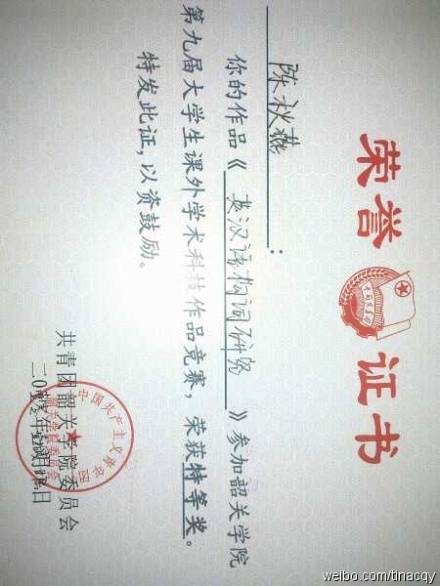 荣誉证书
陈秋燕：
你的作品《英汉语构词研究》参加韶关学院
第九届大学生课外学术科技作品竞赛，荣获特等奖。
特发此证，以资鼓励。
共青团韶关学院委员会
weibo.com/tinacqy